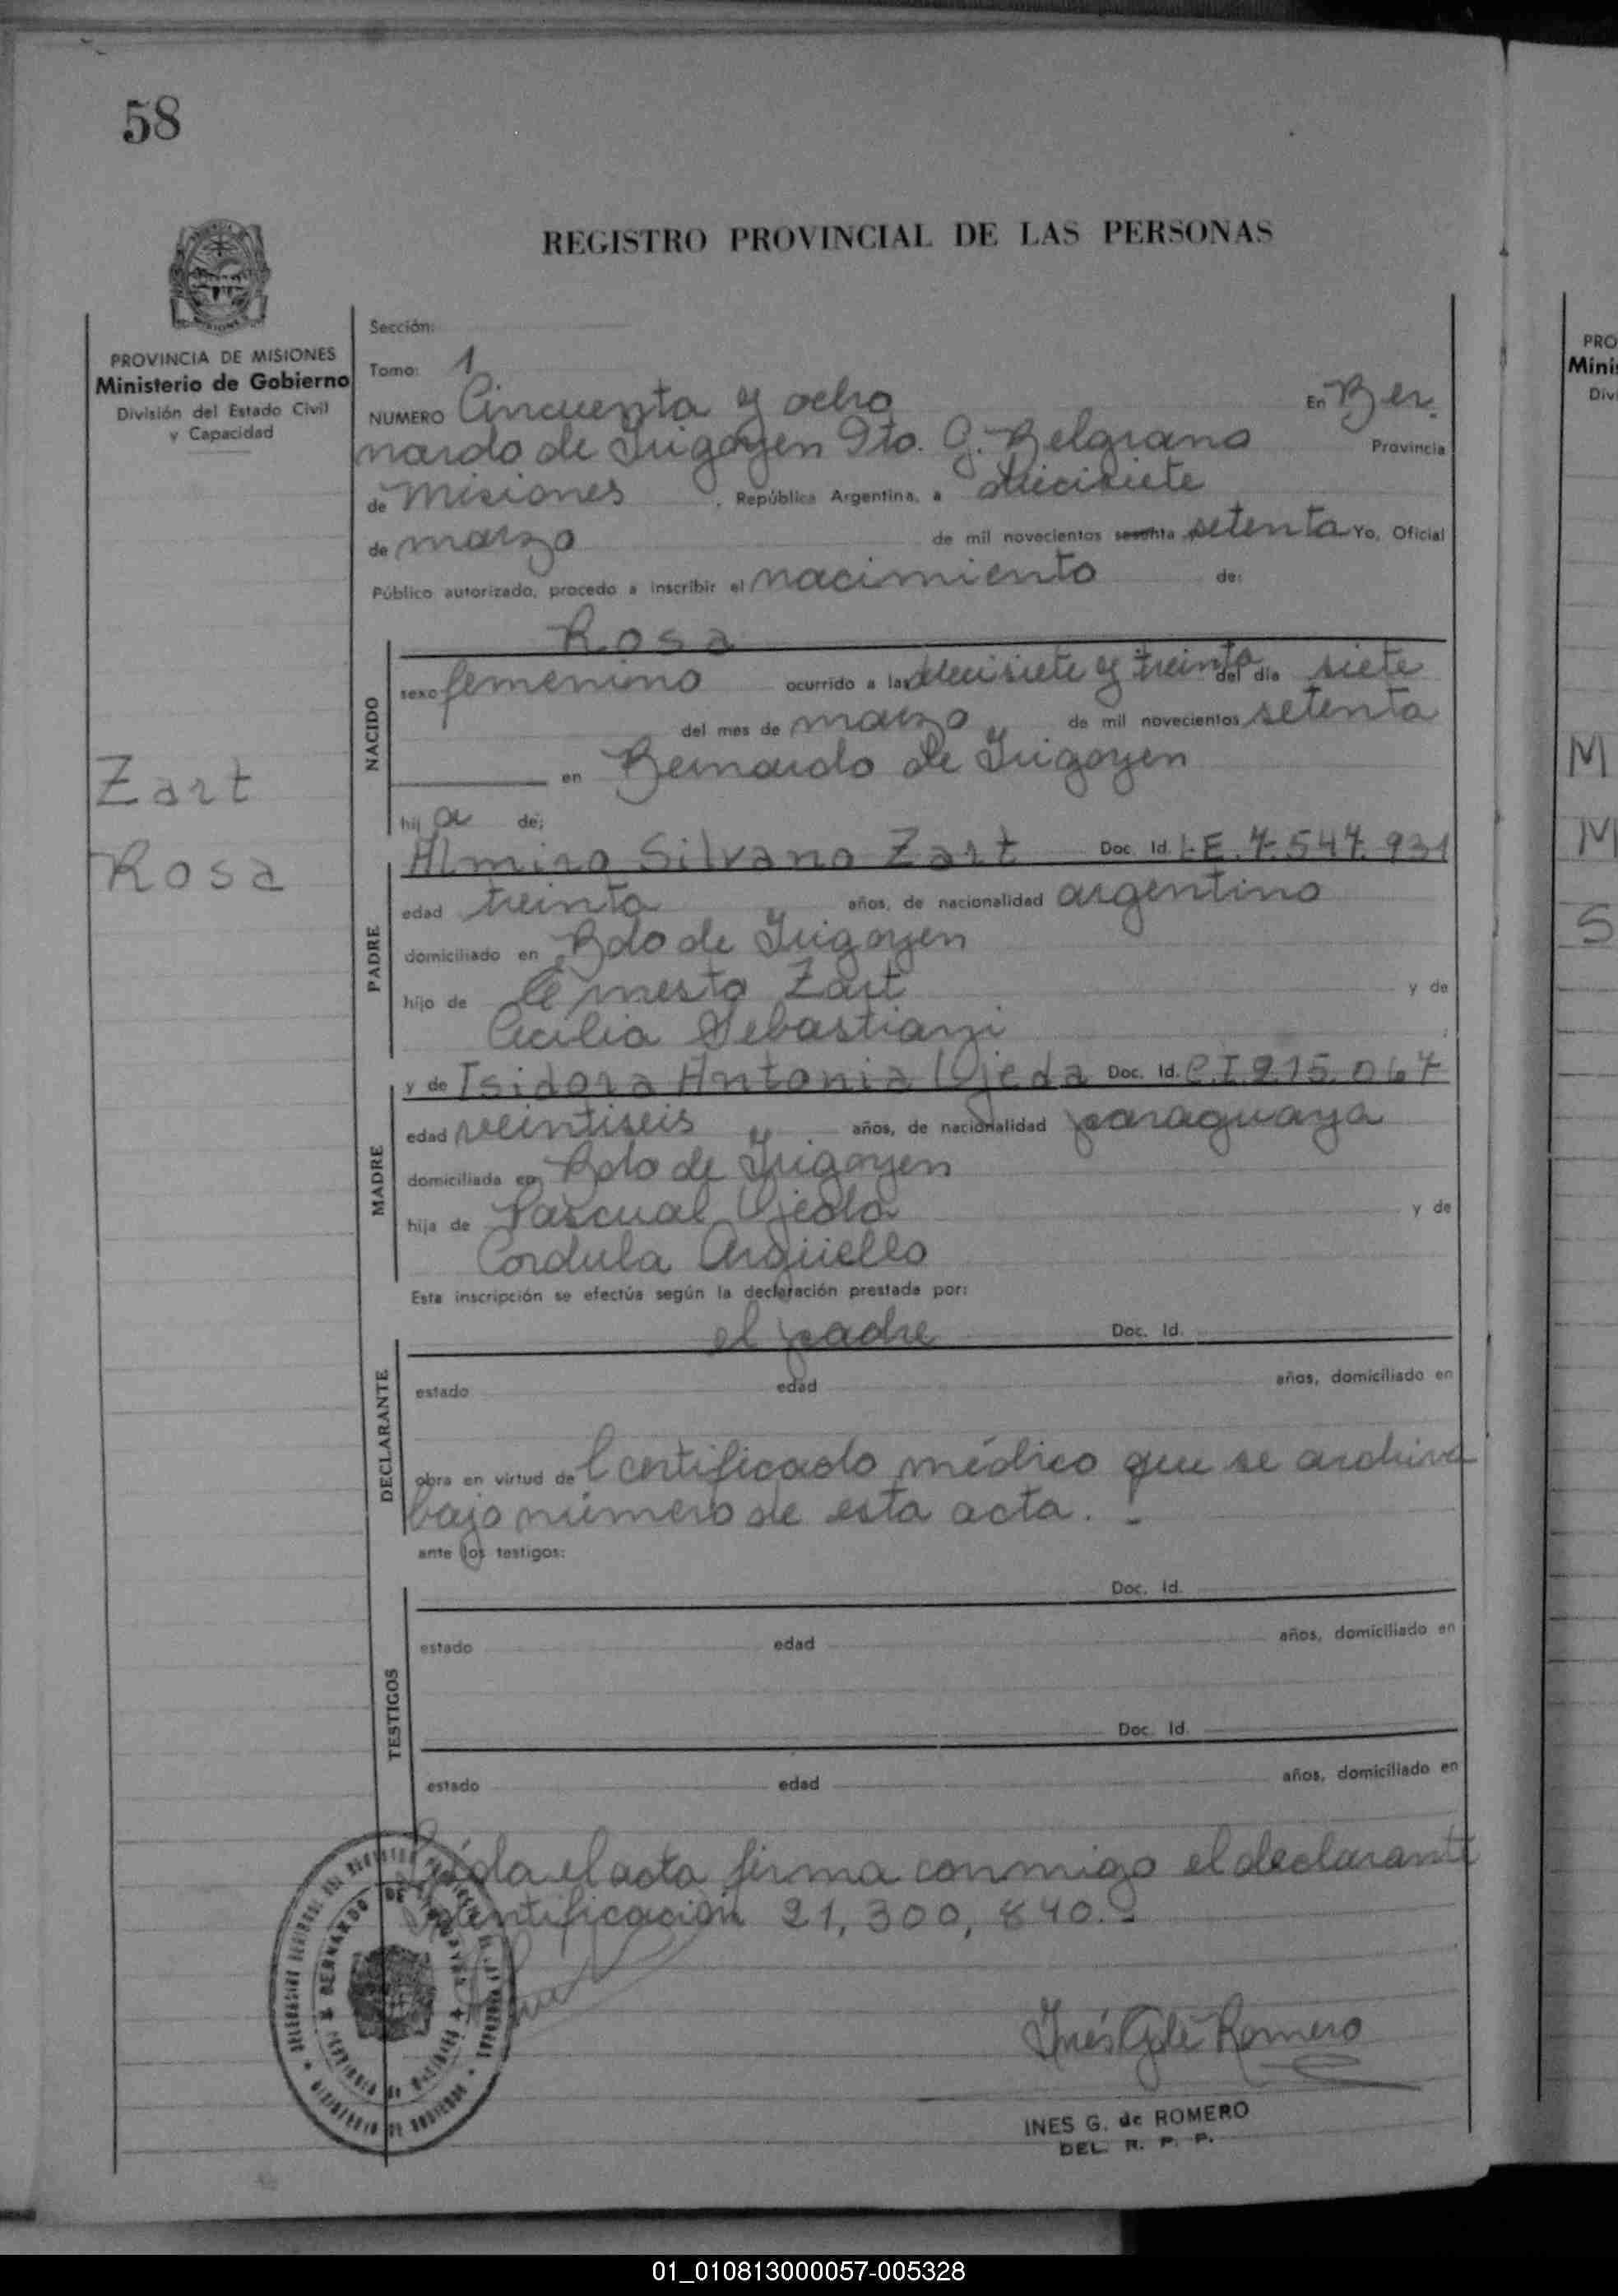 58
REGISTRO PROVINCIAL DE LAS PERSONAS
PROVINCIA DE MISIONES
Ministerio de Gobierno
División del Estado Civil
y Capacidad
Zart
Rosa
Sección:
Tomo: 1
NUMERO Cincuenta y ocho En Ber.
nardo de Irigoyen Dto. G. Belgrano Provincia
de Misiones , República Argentina, a diecisiete
de marzo de mil novecientos sesenta y setenta Yo, Oficial
Público autorizado, procedo a inscribir el nacimiento de:
Rosa
NACIDO
sexo femenino ocurrido a las diecisiete y treinta del día siete
del mes de marzo de mil novecientos setenta
en Bernardo de Irigoyen
hij a de;
PADRE
Almiro Silvano Zart Doc. Id. L.E. 7.547.931
edad treinta años, de nacionalidad argentino
domiciliado en Bdo de Irigoyen
hijo de Ernesto Zart y de
Cecilia Sebastiani
MADRE
y de Isidora Antonia Ojeda Doc. Id. C.I. 215.067
edad veintiseis años, de nacionalidad paraguaya
domiciliada en Bdo de Irigoyen
hija de Pascual Ojeda y de
Cordula Argüello
Esta inscripción se efectúa según la declaración prestada por:
DECLARANTE
el padre Doc. Id.
estado edad años, domiciliado en
obra en virtud de l certificado médico que se archiva
bajo número de esta acta. -
ante los testigos:
TESTIGOS
Doc. Id.
estado edad años, domiciliado en
Doc. Id.
estado edad años, domiciliado en
Leída el acta firma conmigo el declarante
Identificación 21,300,840.-
BERNARDO DE IRIGOYEN
PROVINCIA DE MISIONES
MINISTERIO DE GOBIERNO
Inés Romero
INES G. de ROMERO
DEL. R. P. P.
PRO
Mini
Div
M
M
S
01_010813000057-005328